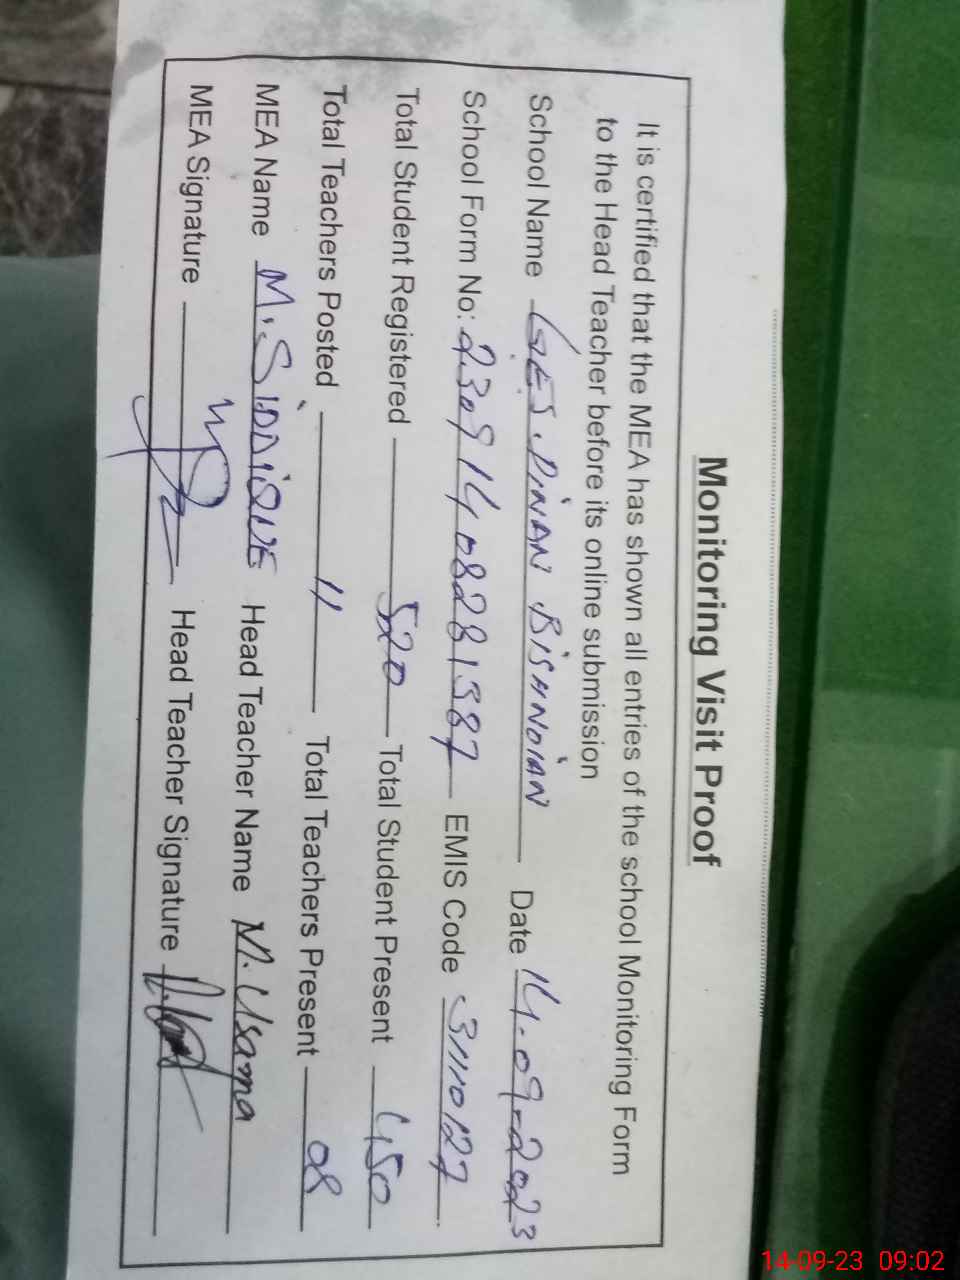 Monitoring Visit Proof
It is certified that the MEA has shown all entries of the school Monitoring Form
to the Head Teacher before its online submission
School Name GES.DINAN BISHNOIAN Date 14.09-2023
School Form No: 23091408281387 EMIS Code 31110127
Total Student Registered 520 Total Student Present 450
Total Teachers Posted 11 Total Teachers Present 08
MEA Name M.SIDDIQUE Head Teacher Name M.Usama
MEA Signature Head Teacher Signature
14-09-23 09:02